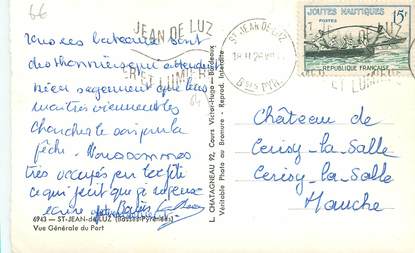 66
JEAN DE LUZ
ET LUMIÈRE
ST-JEAN-DE-LUZ
18 H
BSES PYR.
JOUTES NAUTIQUES
15F
POSTES
RÉPUBLIQUE FRANÇAISE
ET LUMIÈRE
Tous ces bateaux sont
des thoniers qui attendent
bien sagement que leurs
maîtres viennent les
chercher le soir pour la
pêche. Nous sommes
très occupés en
ce qui fait que
écrire
Baisers
6943 - ST-JEAN-de-LUZ (Basses-Pyrénées)
Vue Générale du Port
L. CHATAGNEAU 92, Cours Victor-Hugo - Bordeaux
Véritable Photo au Bromure - Reprod. Interdite
Château de
Cerisy-la-Salle
Cerisy-la-Salle
Manche